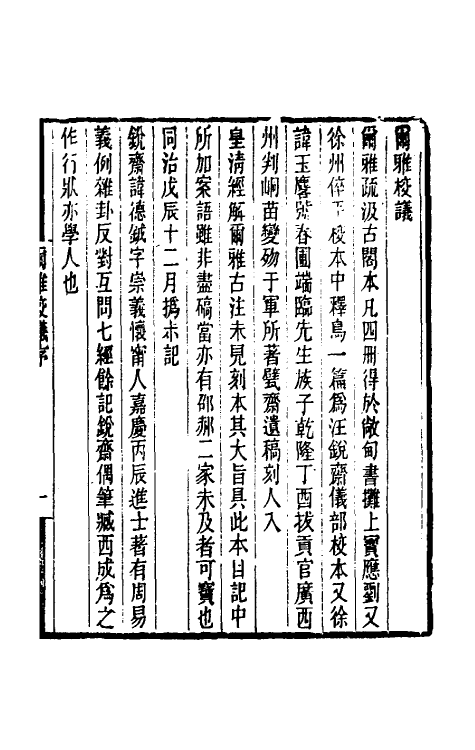 爾雅校議
爾雅疏汲古閣本凡四冊得於敝甸書攤上寶應劉又
徐州倅
校本中釋鳥一篇爲汪銳齋儀部校本又徐
諱玉麐號春圃端臨先生族子乾隆丁酉拔貢官廣西
州判峒苗變歿于軍所著甓齋遺稿刻人入
皇清經解爾雅古注未見刻本其大旨具此本日記中
所加案語雖非盡碻當亦有邵郝二家未及者可寶也
同治戊辰十二月撝尗記
銳齋諱德鉞字崇義懷甯人嘉慶丙辰進士著有周易
義例雜卦反對互問七經餘記銳齋偶筆臧西成爲之
作行狀亦學人也
爾雅校議序
一